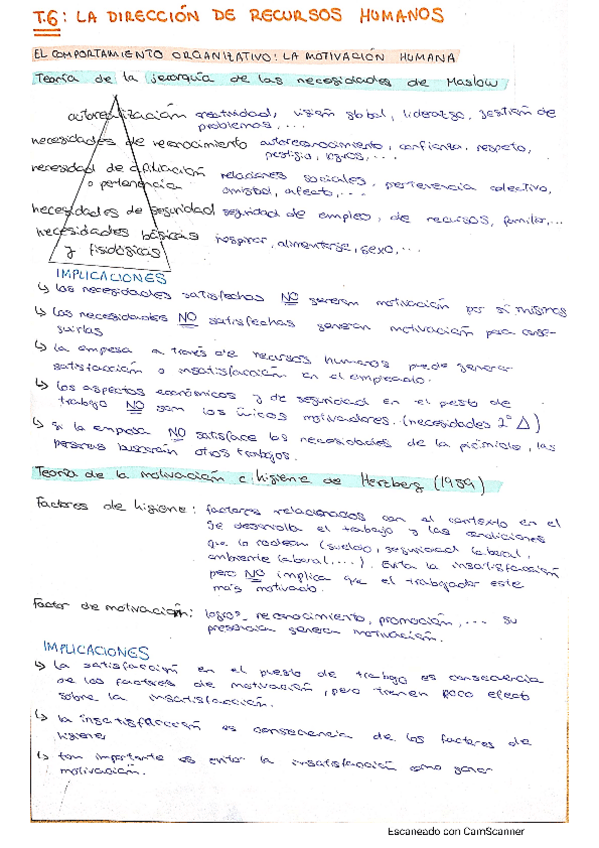 T.6: LA DIRECCIÓN DE RECURSOS HUMANOS
EL COMPORTAMIENTO ORGANIZATIVO: LA MOTIVACIÓN HUMANA
Teoría de la jerarquía de las necesidades de Maslow
autorrealización creatividad, visión global, liderazgo, gestión de
problemas,...
necesidades de reconocimiento autorreconocimiento, confianza, respeto,
prestigio, logros,...
necesidad de afiliación relaciones sociales, pertenencia colectivo,
o pertenencia amistad, afecto,...
necesidades de seguridad seguridad de empleo, de recursos, familiar,...
necesidades básicas respirar, alimentarse, sexo,...
y fisiológicas
IMPLICACIONES
↳ las necesidades satisfechas NO generan motivación por sí mismas
↳ las necesidades NO satisfechas generan motivación para conse-
guirlas
↳ la empresa a través de recursos humanos puede generar
satisfacción o insatisfacción en el empleado.
↳ los aspectos económicos y de seguridad en el puesto de
trabajo NO son los únicos motivadores. (necesidades 2º Δ)
↳ si la empresa NO satisface las necesidades de la pirámide, las
personas buscarán otros trabajos.
Teoría de la motivación e higiene de Herzberg (1959)
Factores de higiene: factores relacionados con el contexto en el
se desarrolla el trabajo y las condiciones
que lo rodean (sueldo, seguridad laboral,
ambiente laboral....). Evita la insatisfacción
pero NO implica que el trabajador este
más motivado.
Factor de motivación: logros, reconocimiento, promoción,... su
presencia genera motivación.
IMPLICACIONES
↳ la satisfacción en el puesto de trabajo es consecuencia
de los factores de motivación, pero tienen poco efecto
sobre la insatisfacción.
↳ la insatisfacción es consecuencia de los factores de
higiene
↳ tan importante es evitar la insatisfacción como generar
motivación.
Escaneado con CamScanner